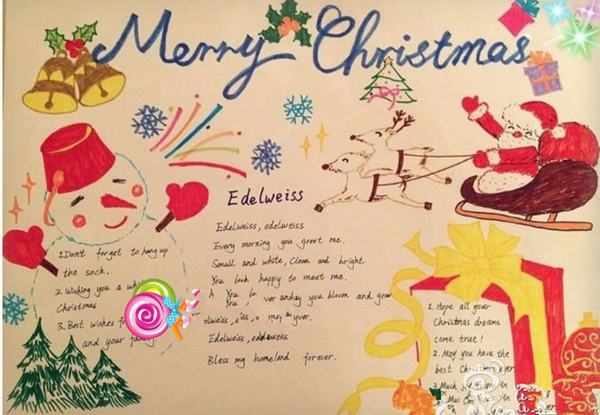 Merry Christmas
Edelweiss
Edelweiss, edelweiss
Every morning you greet me.
Small and white, clean and bright
You look happy to meet me.
you bloom and grow
Edelweiss, edelweiss
Bless my homeland forever.
1. Don't forget to hang up
the sock.
2. Wishing you a
Christmas
3. Best wishes
and your
1. Hope all your
Christmas dreams
come true!
2. May you have the
best Christmas ever
3. Much